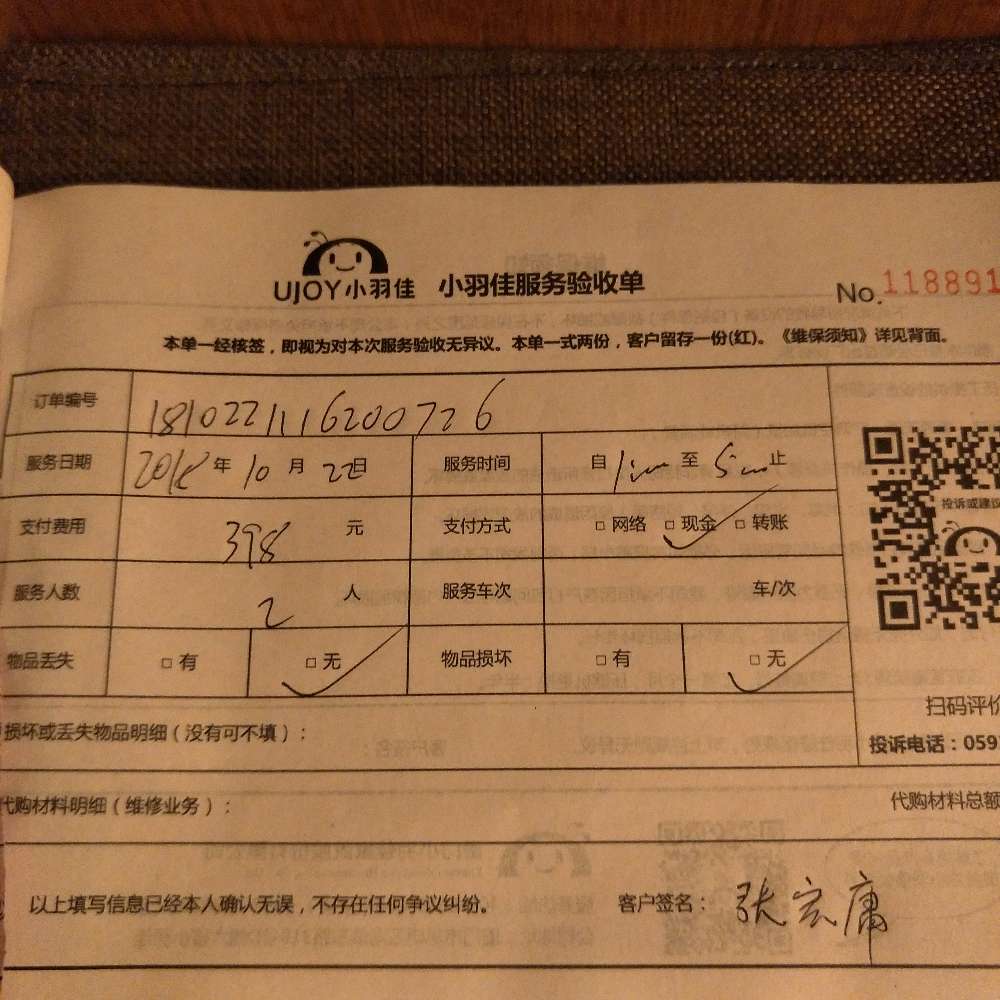 UJOY小羽佳 小羽佳服务验收单 No. 118891
本单一经核签，即视为对本次服务验收无异议。本单一式两份，客户留存一份(红)。《维保须知》详见背面。
订单编号 1810221116200726
服务日期 2018年10月22日 服务时间 自 1:00 至 5:00 止
投诉或建议
支付费用 398 元 支付方式 □网络 □现金 □转账
服务人数 2 人 服务车次 车/次
物品丢失 □有 □无 物品损坏 □有 □无
扫码评价
损坏或丢失物品明细（没有可不填）：
投诉电话：059
代购材料明细（维修业务）： 代购材料总额
以上填写信息已经本人确认无误，不存在任何争议纠纷。 客户签名： 张宏庸